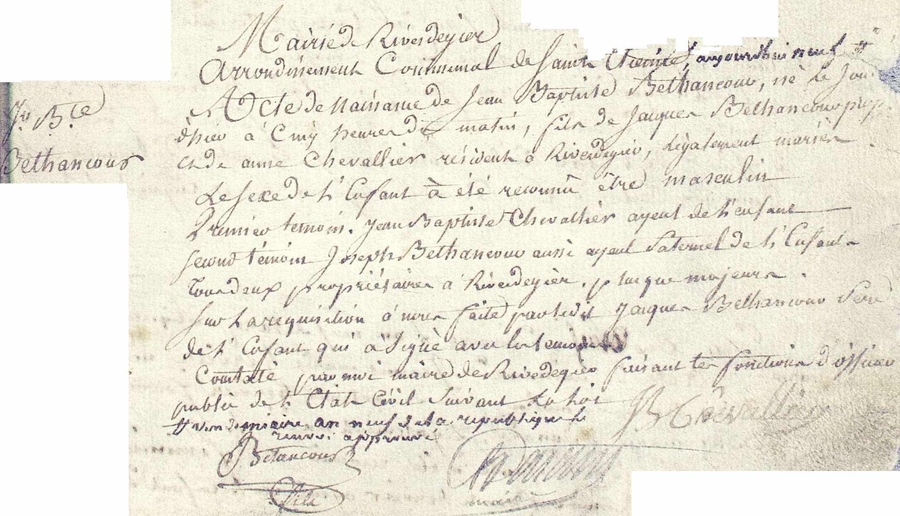 Jn Bte
Bethancour
Mairie de Rivedegier
Arrondissement Communal de Saint Etienne, aujourdhui neuf #
Acte de naissance de Jean Baptiste Bethancour, né le jour
dhier à Cinq heures du matin, fils de Jacques Bethancour prop.
et de anne Chevallier résident à Rivedegier, légalement mariés.
Le sexe de l'Enfant à été reconnu être masculin
Premier temoin, Jean Baptiste Chevallier ayeul de l'enfant
second témoin Joseph Bethancour aussi ayeul Paternel de l'Enfant
Tous deux propriétaires à Rivedegier, plusque majeurs.
Sur la requisition à nous faite par ledit Jacques Bethancour Pere
de l'Enfant qui à signé avec les temoins
Constaté par moi maire de Rivedegier faisant les fonctions d'officier
public de l'Etat Civil suivant la loi
# vendemiaire an neuf de la republique
renvoi approuvé
JB Chevallier
Betancour
fils
maire